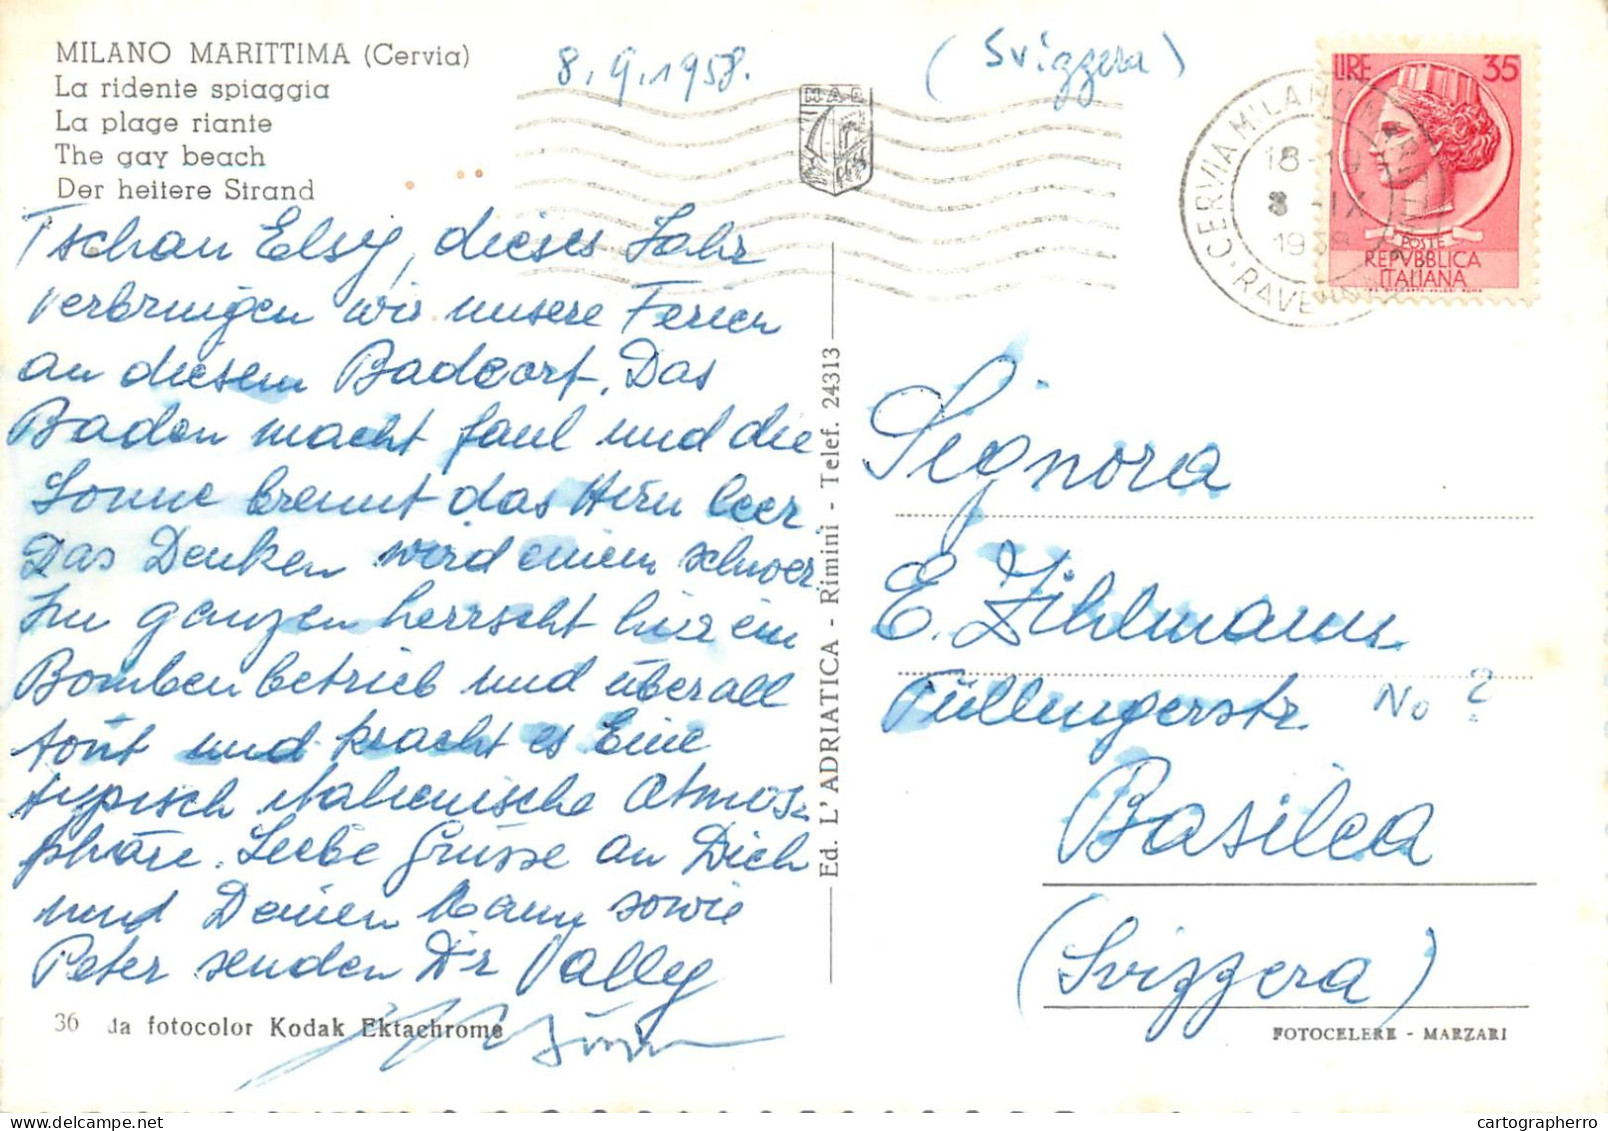 MILANO MARITTIMA (Cervia)
La ridente spiaggia
La plage riante
The gay beach
Der heitere Strand
8.9.1958.
(Svizzera)
LIRE 35
POSTE
REPVBBLICA
ITALIANA
CERVIA MILANO MARITTIMA
18-19
8 -IX
1958
RAVENNA
Tschau Elsy, dieses Jahr
verbringen wir unsere Ferien
an diesem Badeort. Das
Baden macht faul und die
Sonne brennt das Hirn leer
Das Denken wird einem schwer.
Im ganzen herrscht hier ein
Bombenbetrieb und überall
tönt und kracht es Eine
typisch italienische Atmos-
phäre. Liebe Grüsse an Dich
und Deinen Mann sowie
Peter senden Dir Vally
Signora
E. Zihlmann
Füllingerstr. No 2
Basilea
(Svizzera)
Ed. L'ADRIATICA - Rimini - Telef. 24313
36 da fotocolor Kodak Ektachrome
FOTOCELERE - MARZARI
cartographerro